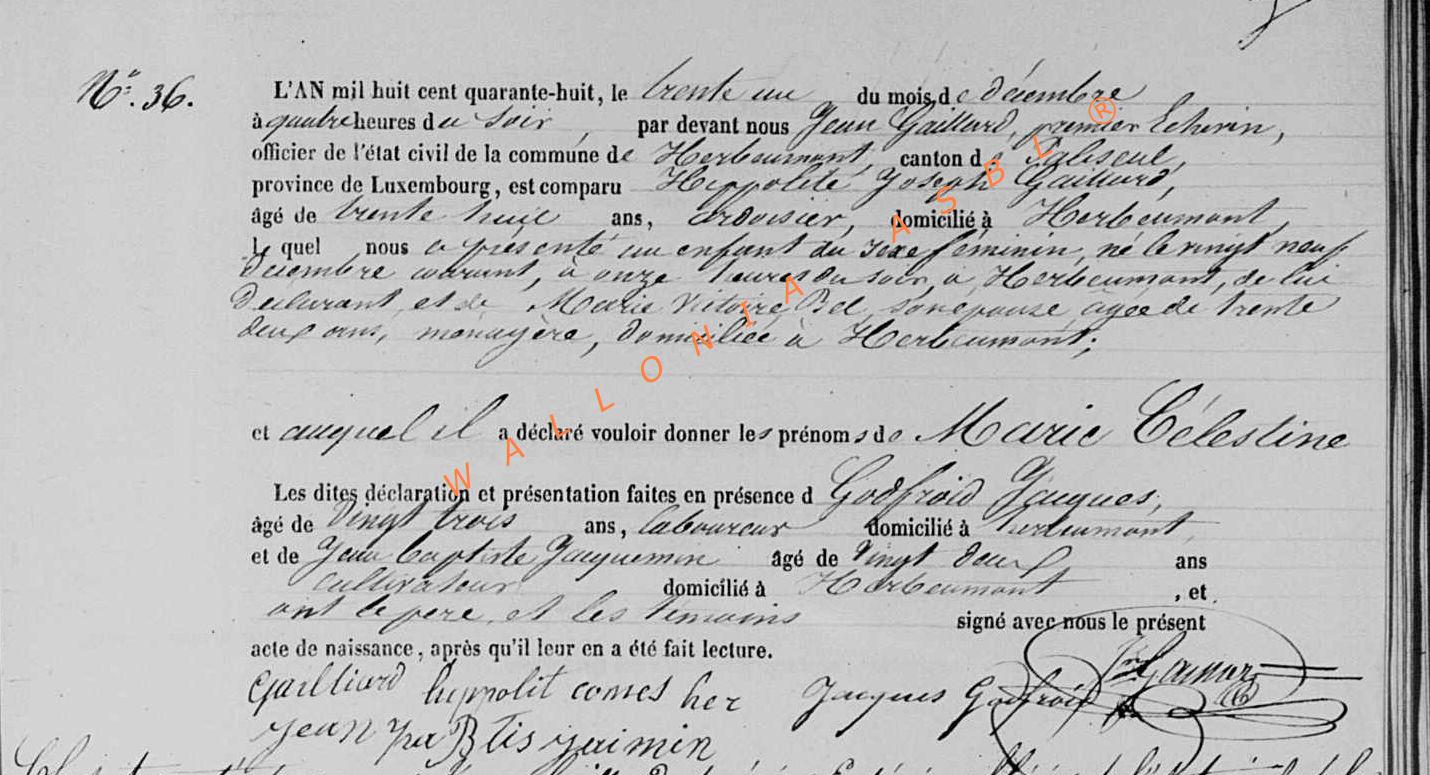 N° 36.
L'AN mil huit cent quarante-huit, le trente un du mois de décembre
à quatre heures du soir, par devant nous Jean Gaillard, premier Echevin,
officier de l'état civil de la commune de Herbeumont, canton de Paliseul,
province de Luxembourg, est comparu Hippolite Joseph Gaillard,
âgé de trente huit ans, ardoisier, domicilié à Herbeumont,
lequel nous a présenté un enfant du sexe feminin, né le vingt neuf
décembre courant, à onze heures du soir, à Herbeumont, de lui
Déclarant, et de Marie Victoire Bel, son epouse, agée de trente
deux ans, menagère, domiciliée à Herbeumont;
et auquel il a déclaré vouloir donner les prénoms de Marie Célestine
Les dites déclaration et présentation faites en présence d Godfroid Jacques,
âgé de vingt trois ans, laboureur domicilié à herbeumont,
et de Jean baptiste Jacquemin âgé de vingt deux ans
cultivateur domicilié à Herbeumont, et
ont le pere, et les temoins signé avec nous le présent
acte de naissance, après qu'il leur en a été fait lecture.
Gailliard hyppolit
Jacques Godfroid
jean
WALLONIA ASBL ®